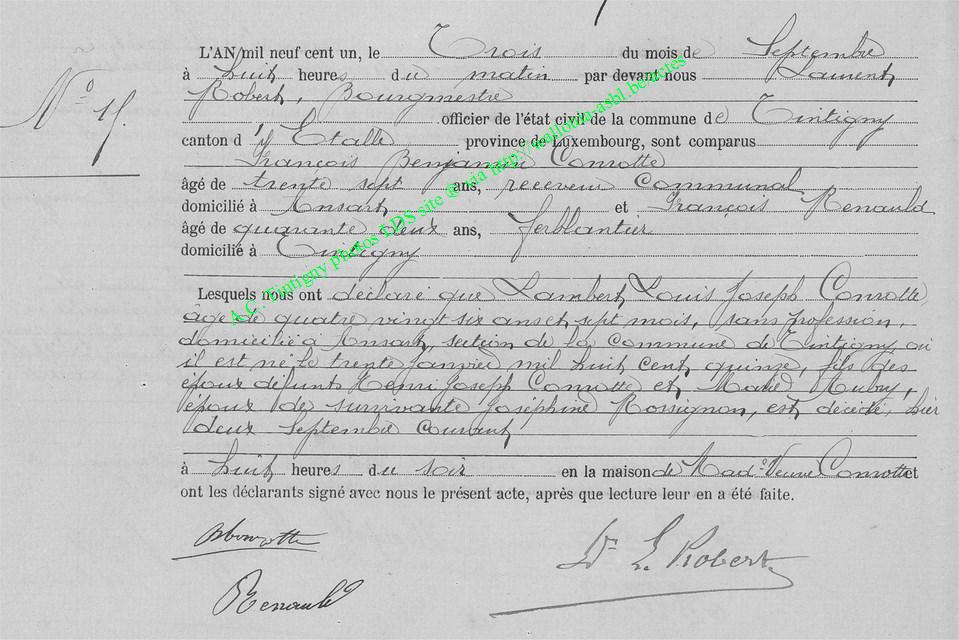 L'AN mil neuf cent un, le Trois du mois de Septembre
à huit heures du matin par devant nous Laurent
Robert, Bourgmestre
Nº 15.
officier de l'état civil de la commune de Tintigny
canton d'Etalle province de Luxembourg, sont comparus
François Benjamin Conrotte
âgé de trente sept ans, receveur Communal
domicilié à Ansart et François Renauld
âgé de quarante deux ans, ferblantier
domicilié à Tintigny
Lesquels nous ont déclaré que Lambert Louis Joseph Conrotte,
âgé de quatre vingt six ans et sept mois, sans profession,
domicilié à Ansart, section de la commune de Tintigny où
il est né le trente janvier mil huit cent quinze, fils des
époux défunts Henri Joseph Conrotte et Marie Aubry,
époux de survivante Joséphine Rossignon, est décédé, hier
deux Septembre courant
à huit heures du soir en la maison de Mad.e Veuve Conrotte et
ont les déclarants signé avec nous le présent acte, après que lecture leur en a été faite.
Dr L. Robert
Renauld
A.C. Tintigny photos LDS site @ via http://wallonia-asbl.be/actes